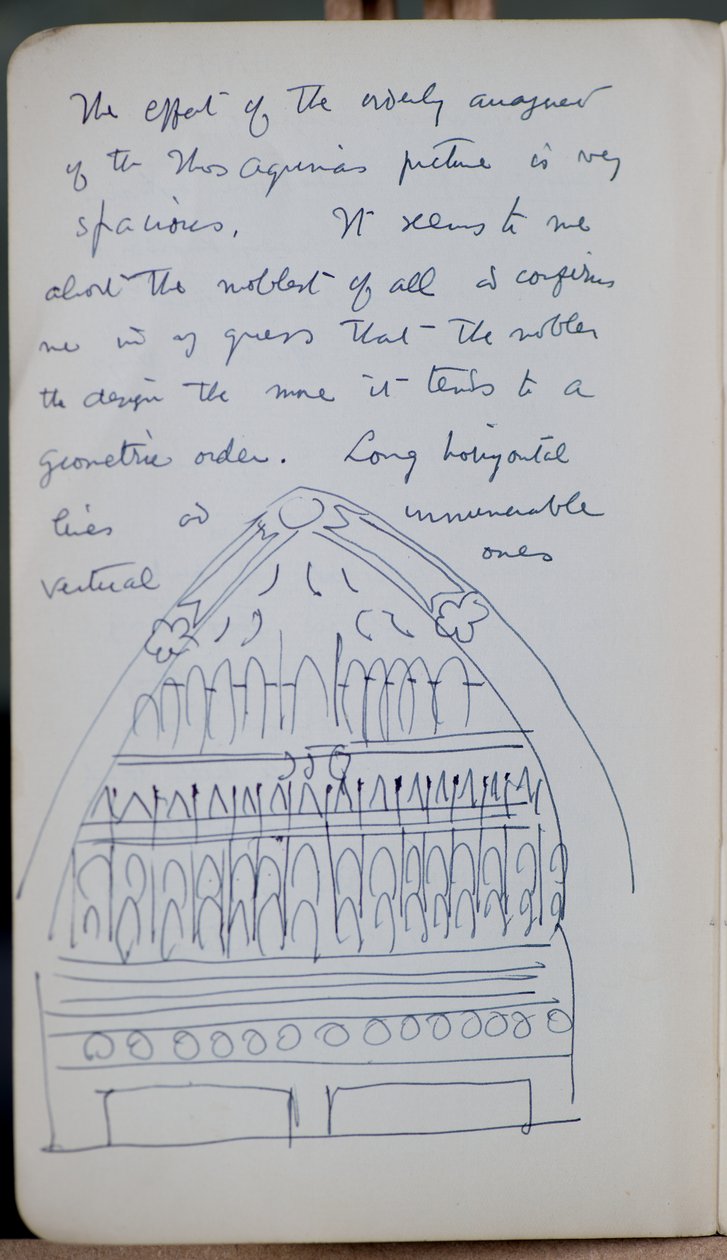 The effect of the orderly arrangement
of the Thos Aquinas picture is very
spacious. It seems to me
about the noblest of all & confirms
me in my guess that the nobler
the design the more it tends to a
geometric order. Long horizontal
lines and innumerable
vertical ones